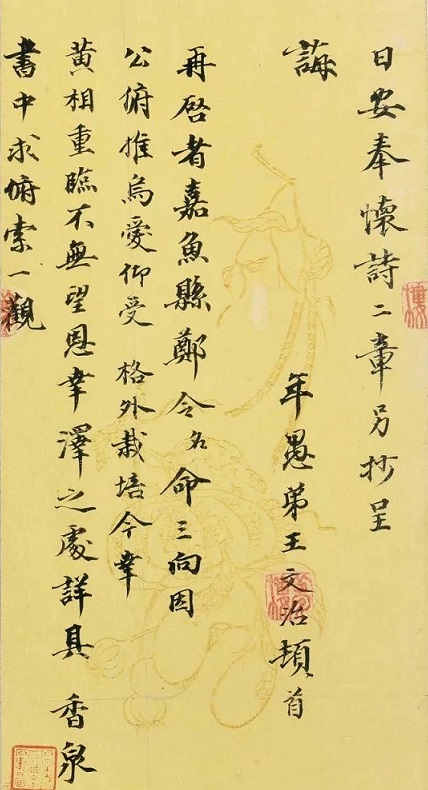 日安奉懷詩二章另抄呈
誨
年愚弟王文治頓首
再啓者嘉魚縣鄭令名命三向因
公俯推烏愛仰受 格外栽培今幸
黃相重臨不無望恩幸澤之處詳具 香泉
書中求俯索一觀